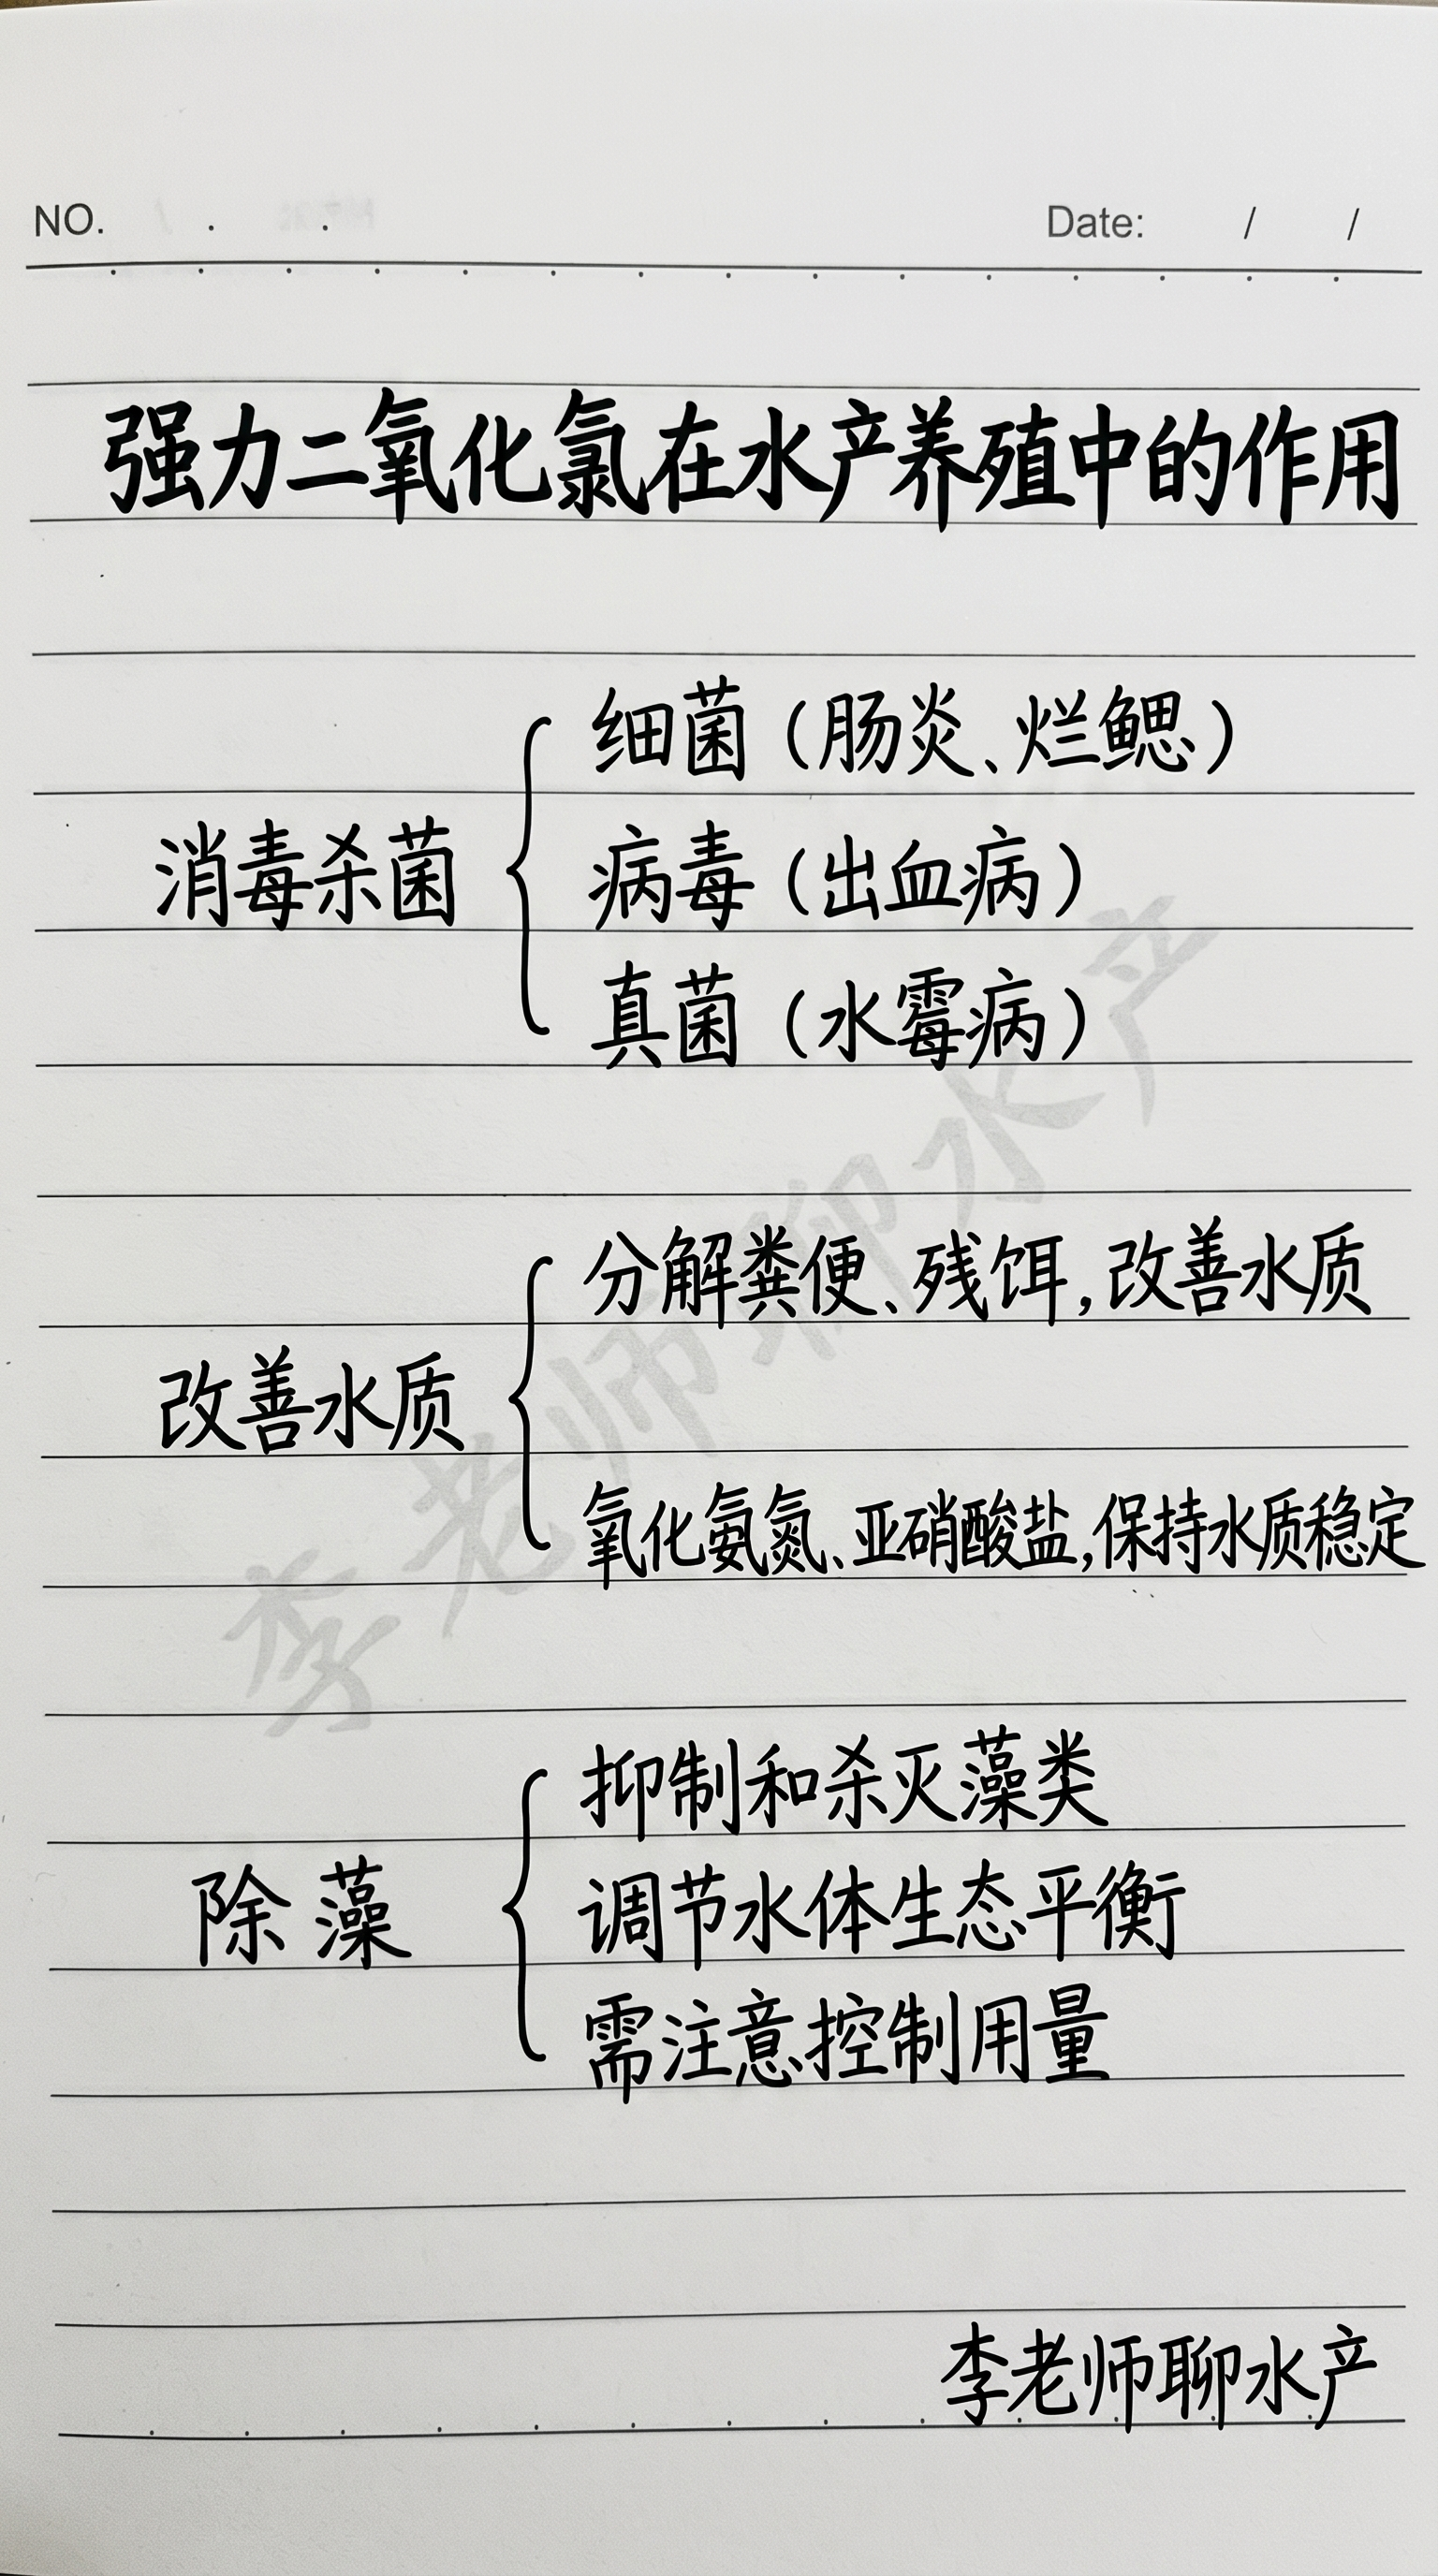 NO. . .
Date: / /
强力二氧化氯在水产养殖中的作用
消毒杀菌
细菌（肠炎、烂鳃）
病毒（出血病）
真菌（水霉病）
改善水质
分解粪便、残饵，改善水质
氧化氨氮、亚硝酸盐，保持水质稳定
除藻
抑制和杀灭藻类
调节水体生态平衡
需注意控制用量
李老师聊水产
李老师聊水产